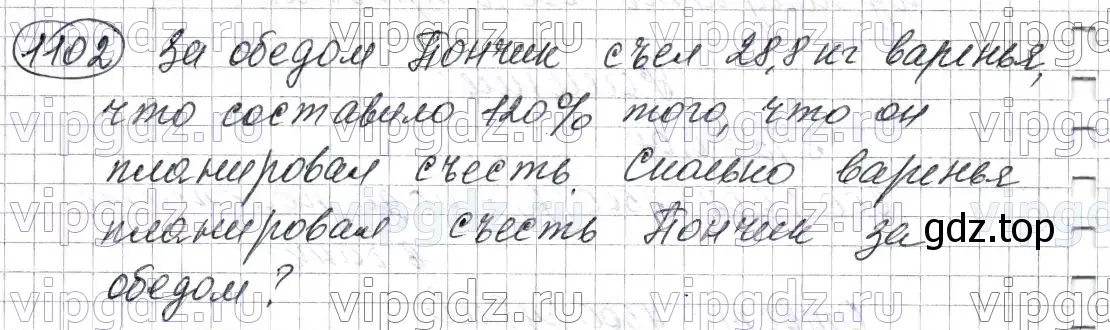 1102 За обедом Пончик съел 28,8 кг варенья,
что составило 120% того, что он
планировал съесть. Сколько варенья
планировал съесть Пончик за
обедом?
gdz.top
vipgdz.ru